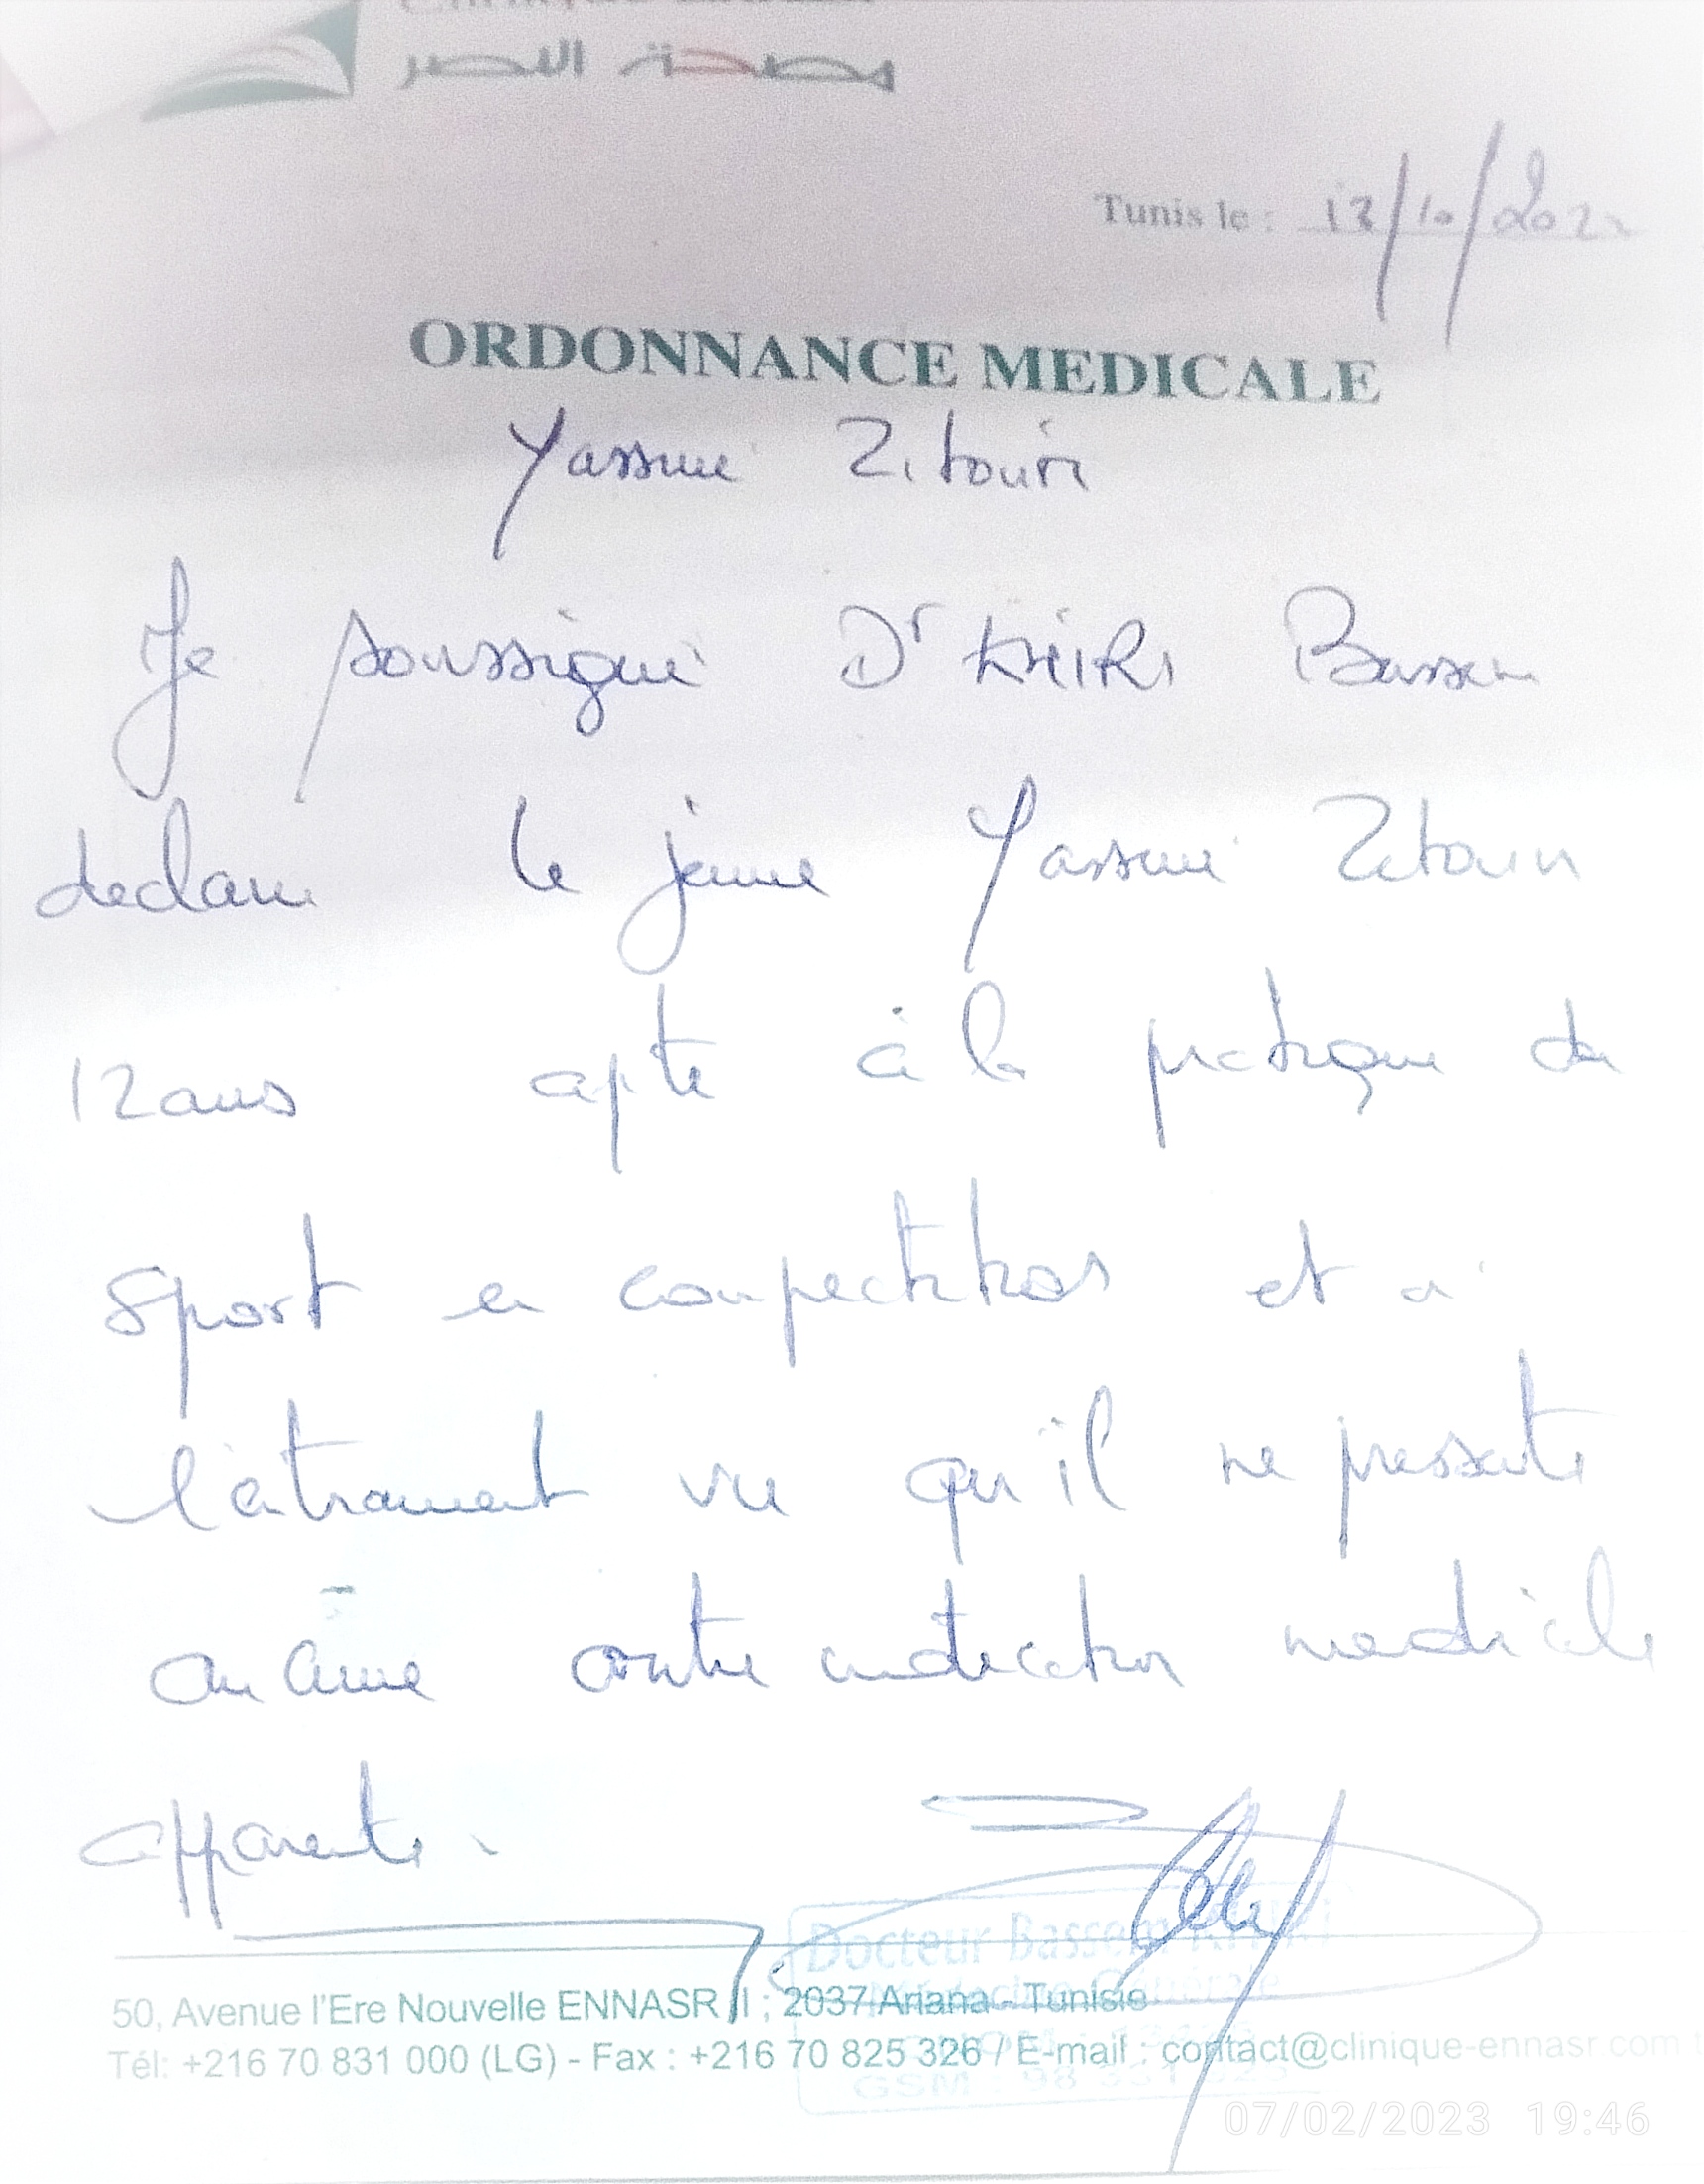 مصحة النصر
Tunis le : 13/10/202
ORDONNANCE MEDICALE
Yassine Zitouni
Je soussigné Dr KHIRI Bassem
declare le jeune Yassine Zitouni
12 ans apte à la pratique du
Sport en compectitions et à
l'entrainement vu qu'il ne pressente
aucune contre indication medicale
apparente.
Docteur Bassem
Médecine Générale
50, Avenue l'Ere Nouvelle ENNASR II ; 2037 Ariana - Tunisie
Tél: +216 70 831 000 (LG) - Fax : +216 70 825 326 / E-mail : contact@clinique-ennasr.com
GSM : 98
07/02/2023 19:46